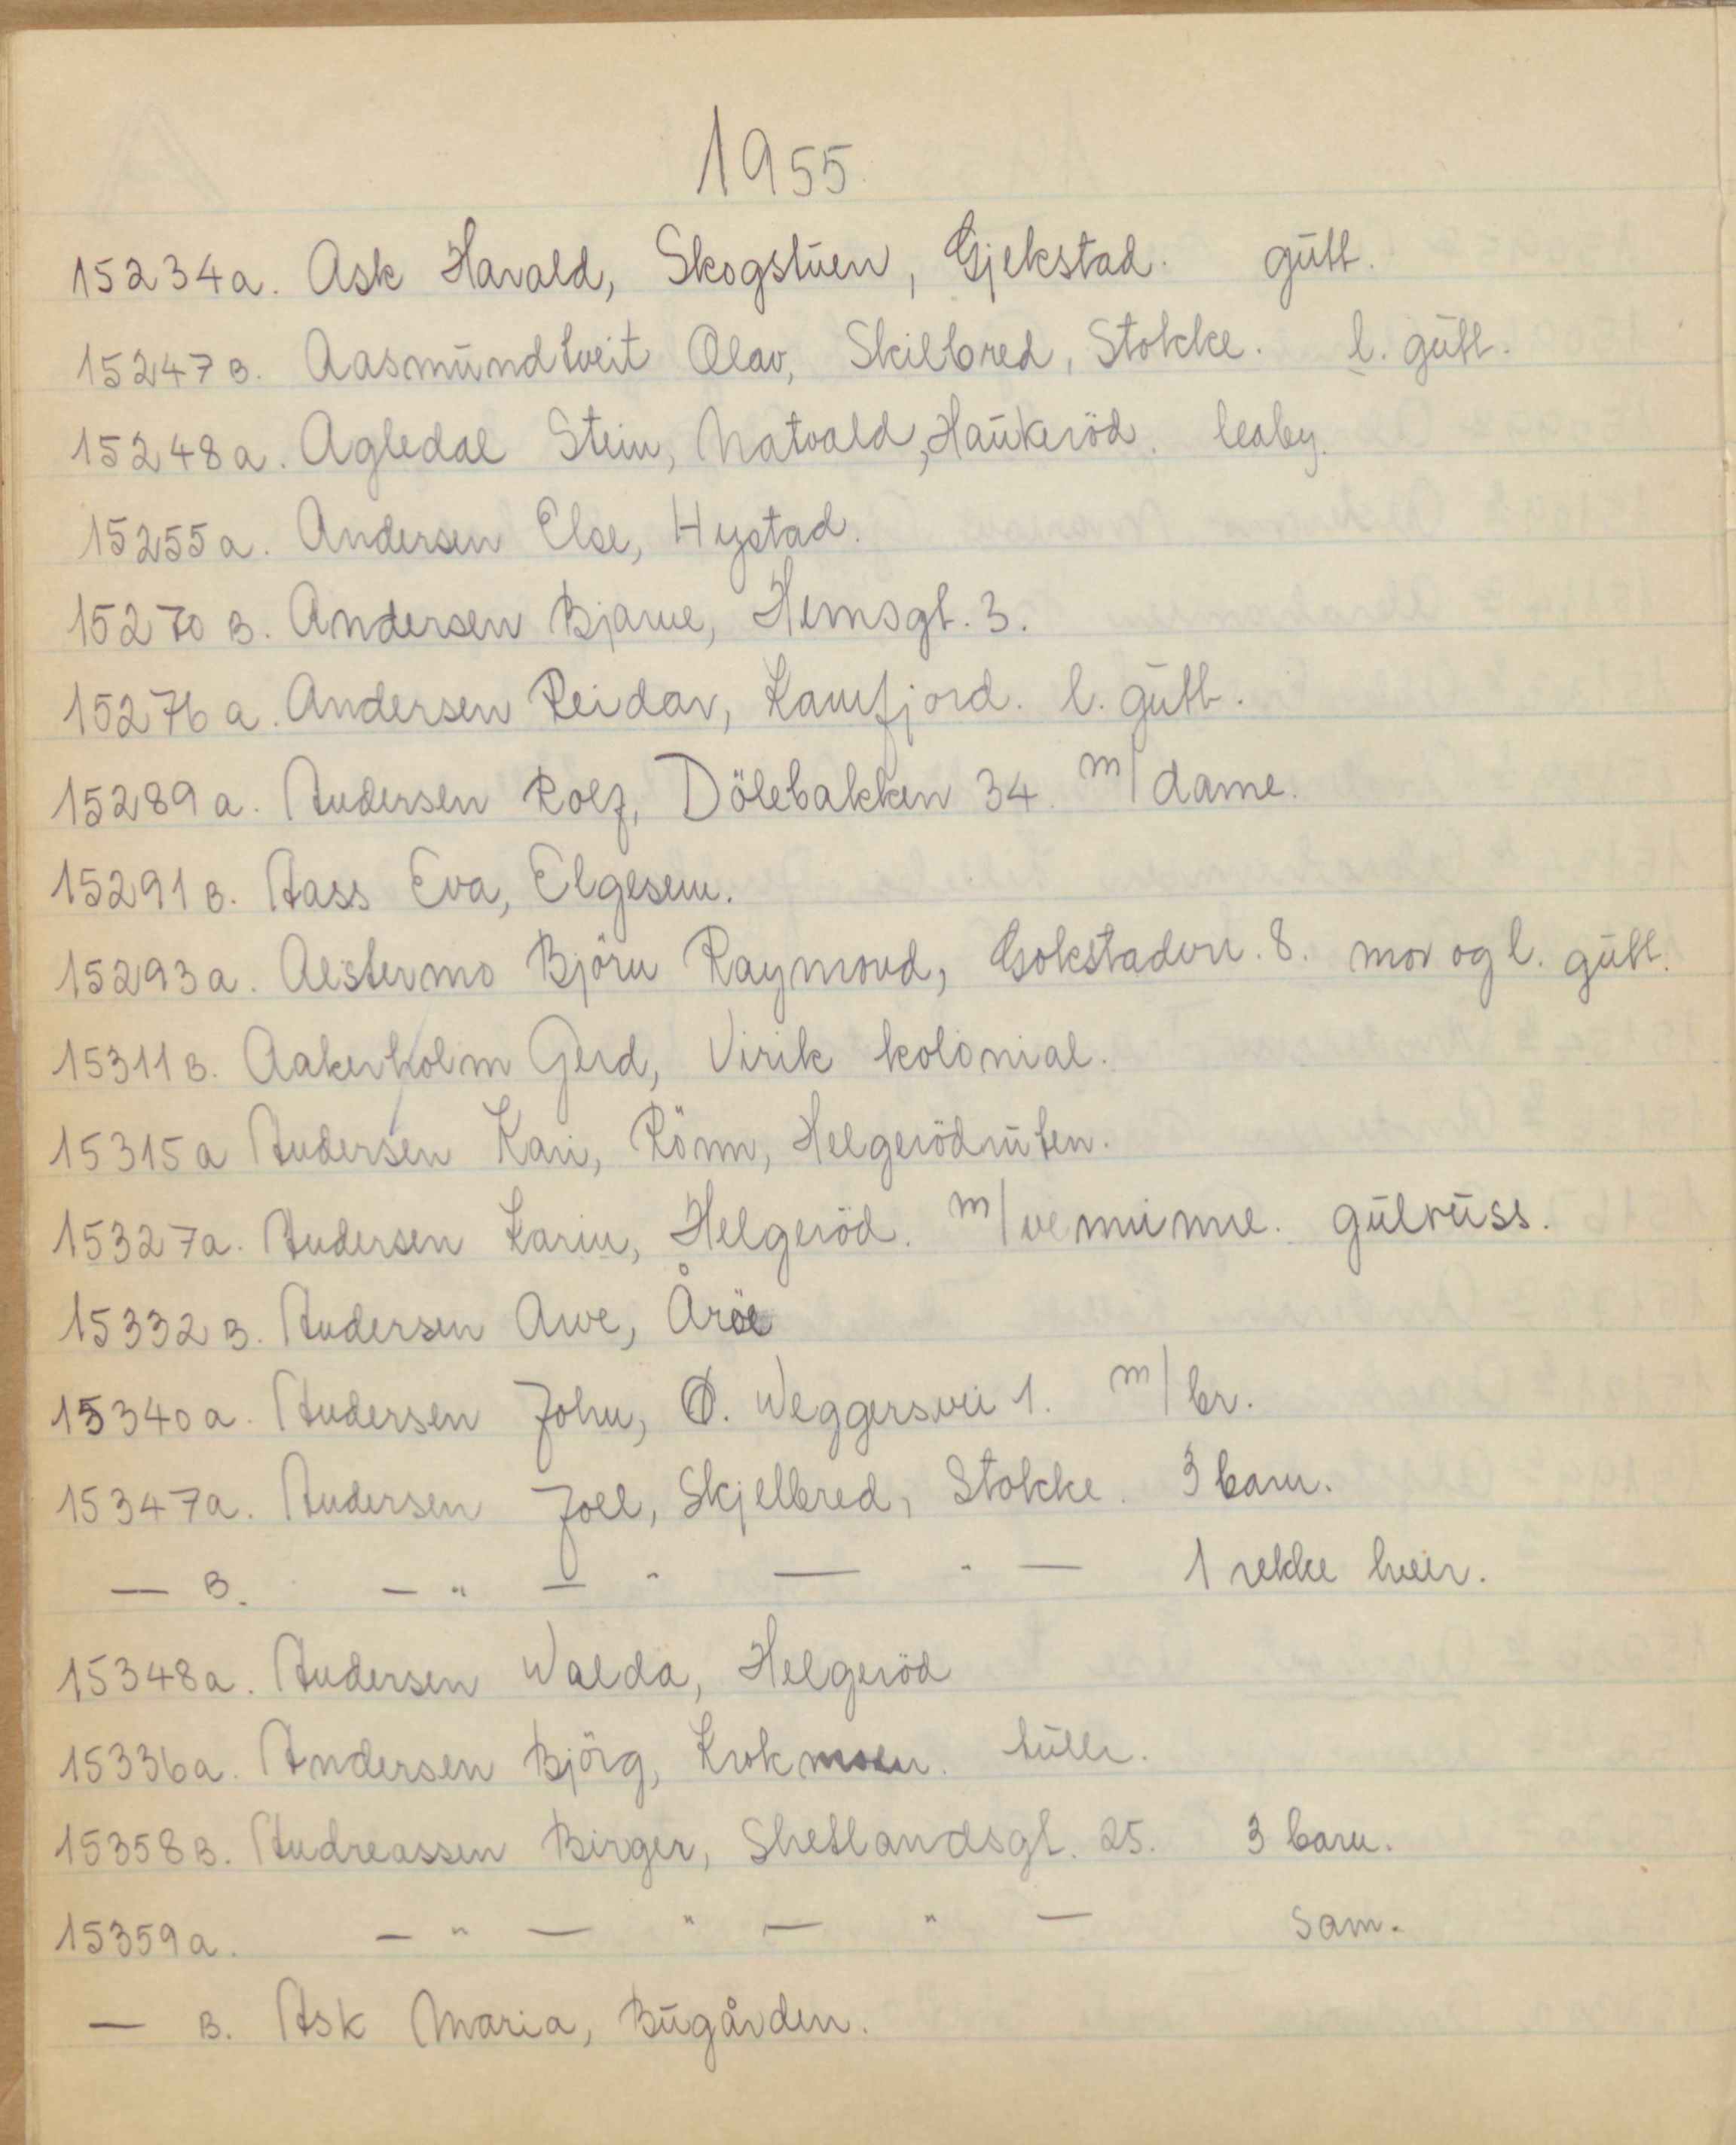 1955.
15234a. Ask Harald, Skogstuen, Gjekstad. gutt.
15247B. Aasmundtveit Olav, Skilbred, Stokke. l. gutt.
15248a. Agledal Stein, Natvald, Haukeröd. leaby.
15255a. Andersen Else, Hystad.
15270B. Andersen Bjarne, Hemsgt. 3.
15276a. Andersen Reidar, Kamfjord. l. gutt.
15289a. Andersen Rolf, Dölebakken 34. m/dame.
15291B. Aass Eva, Elgesem.
15293a. Alstermo Björn Raymond, Gokstadvn. 8. mor og l. gutt.
15311B. Aakerholm Gerd, Virik kolonial.
15315a Andersen Kari, Rönn, Helgerödruten.
15327a. Andersen Karin, Helgeröd. m/venninne. gulruss.
15332B. Andersen Awe, Åröe
15340a. Andersen John, O. Weggersvei 1. m/br.
15347a. Andersen Joel, Skjelbred, Stokke. 3 barn.
— B. — " — " — " — 1 rekke hver.
15348a. Andersen Walda, Helgeröd
15336a. Andersen Björg, Krokmoen. tullr.
15358B. Andreassen Birger, Shetlandsgt. 25. 3 barn.
15359a. — " — " — " — sam.
— B. Ask Maria, Bugården.